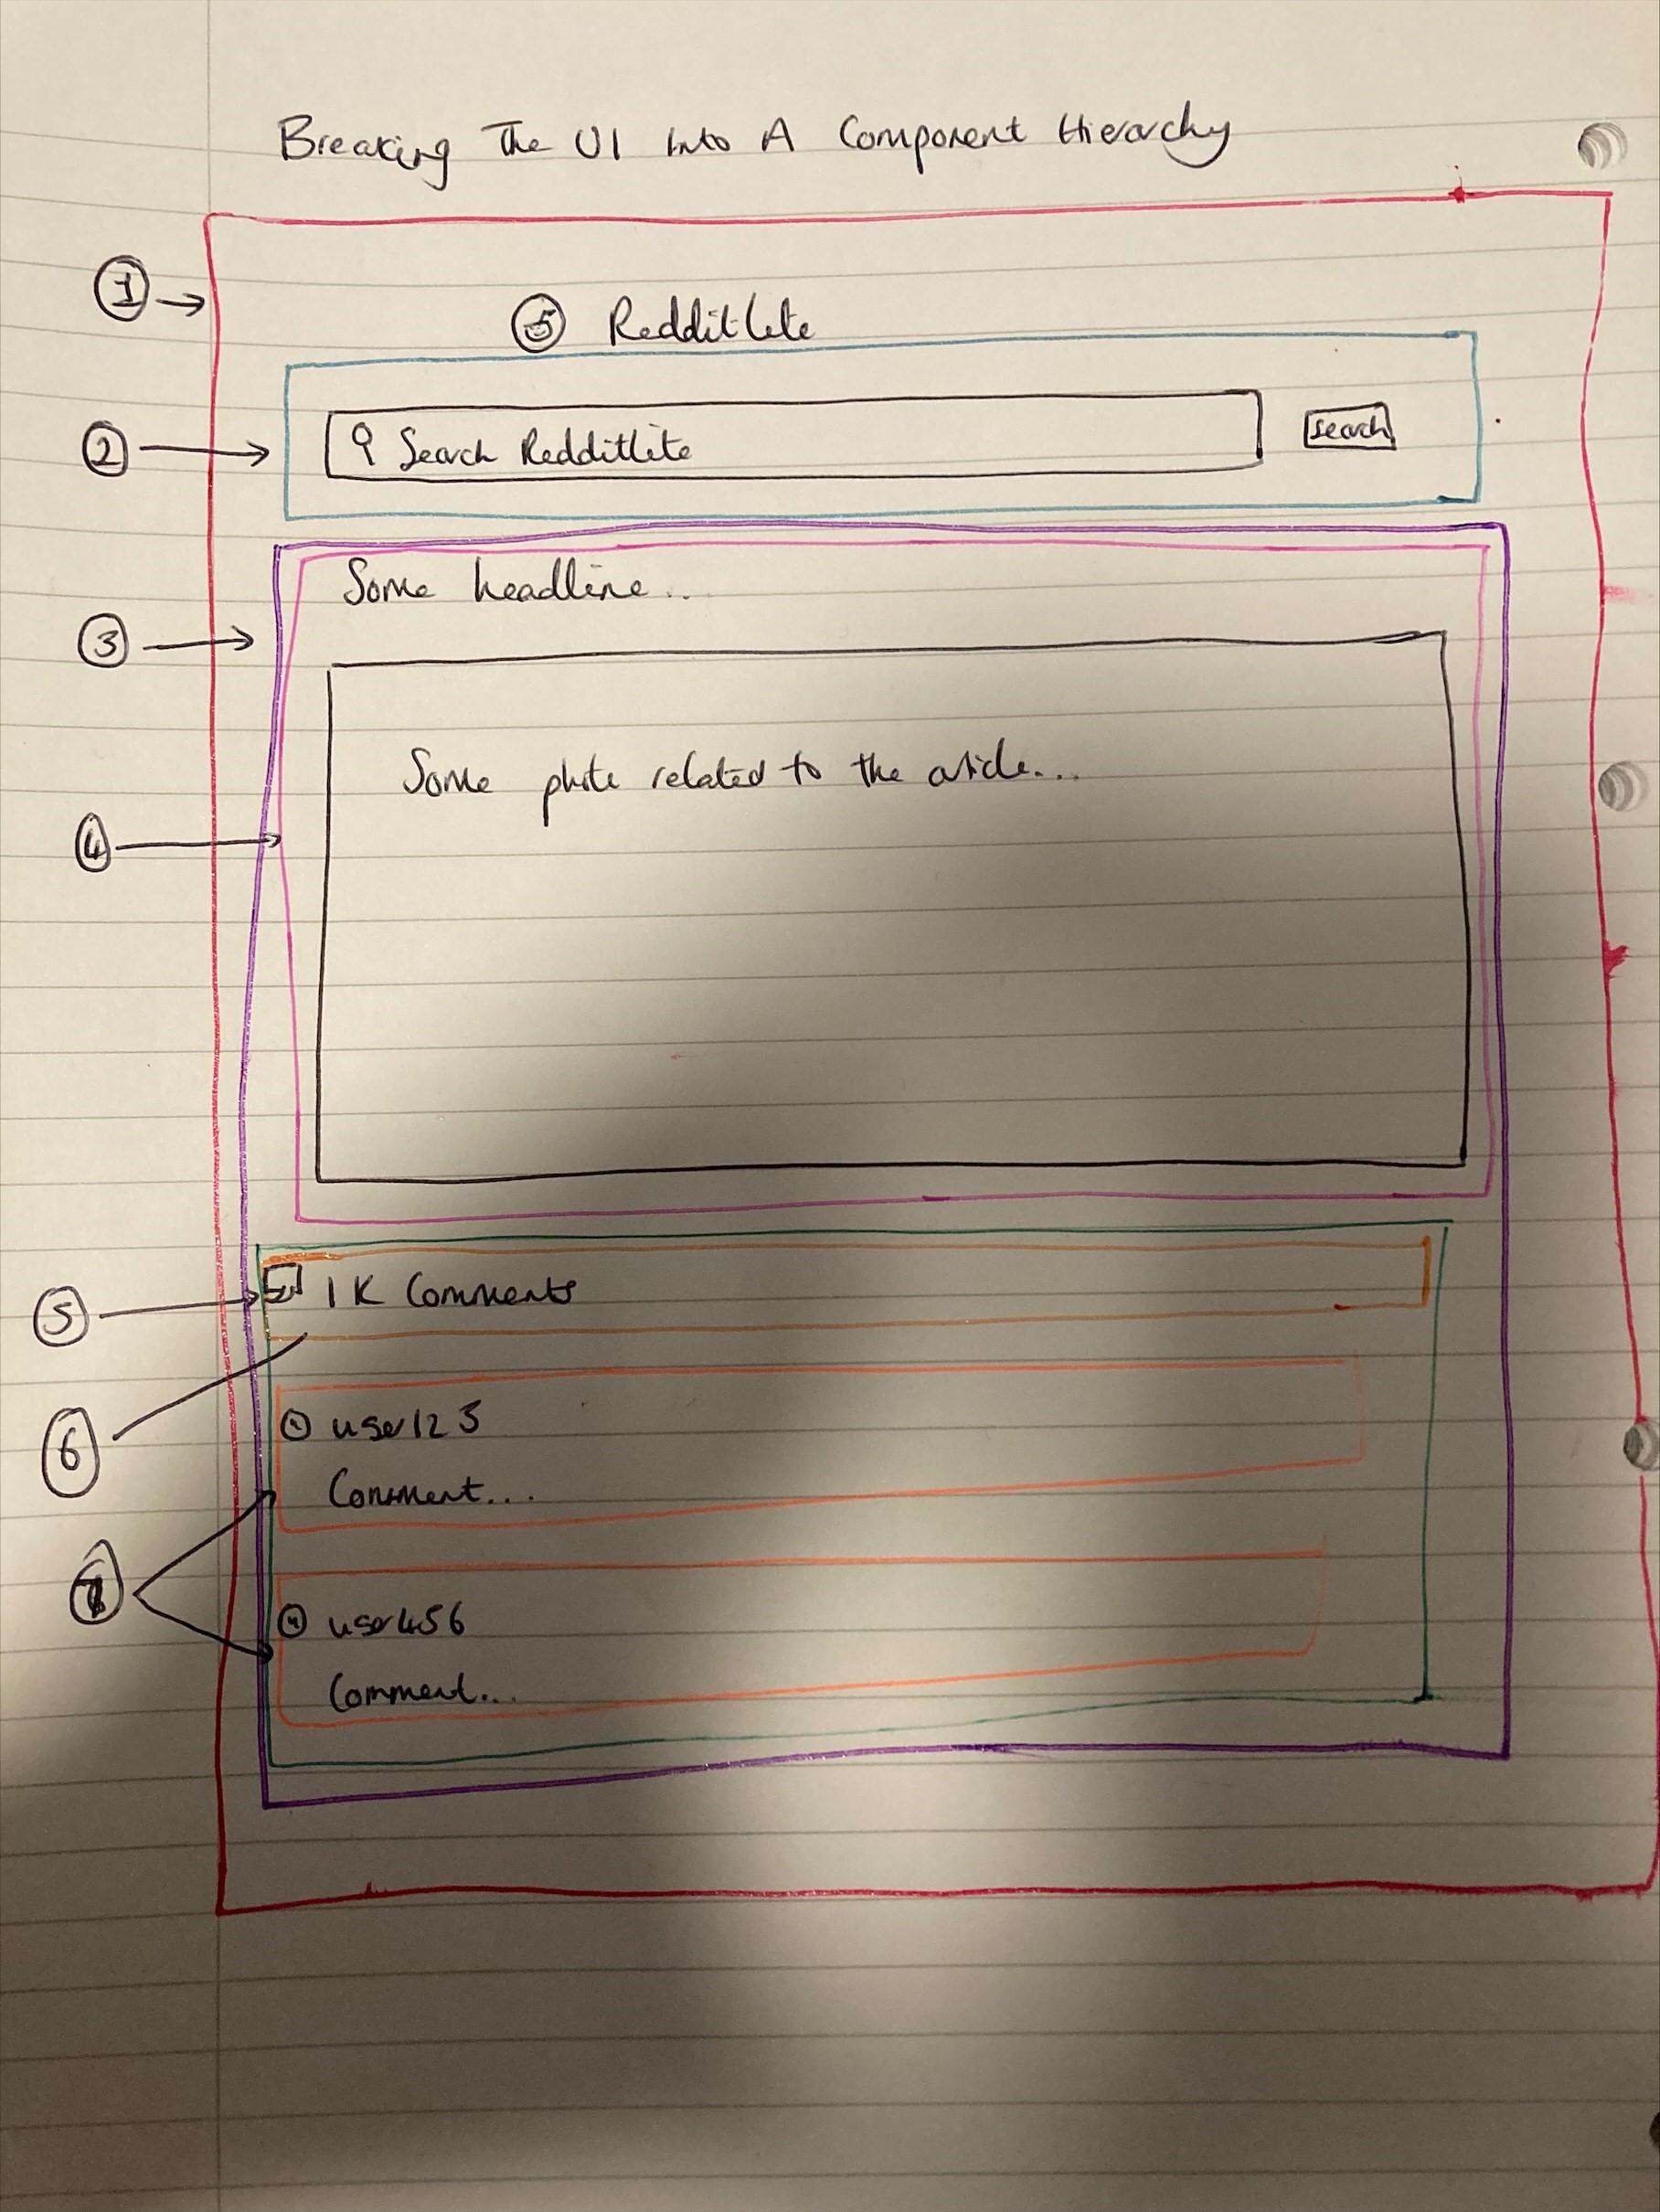 Breaking The UI Into A Component Hierarchy
1
RedditLite
2
Search RedditLite
Search
Some headline...
3
Some photo related to the article...
4
5
1K Comments
6
user123
Comment...
7
user456
Comment...